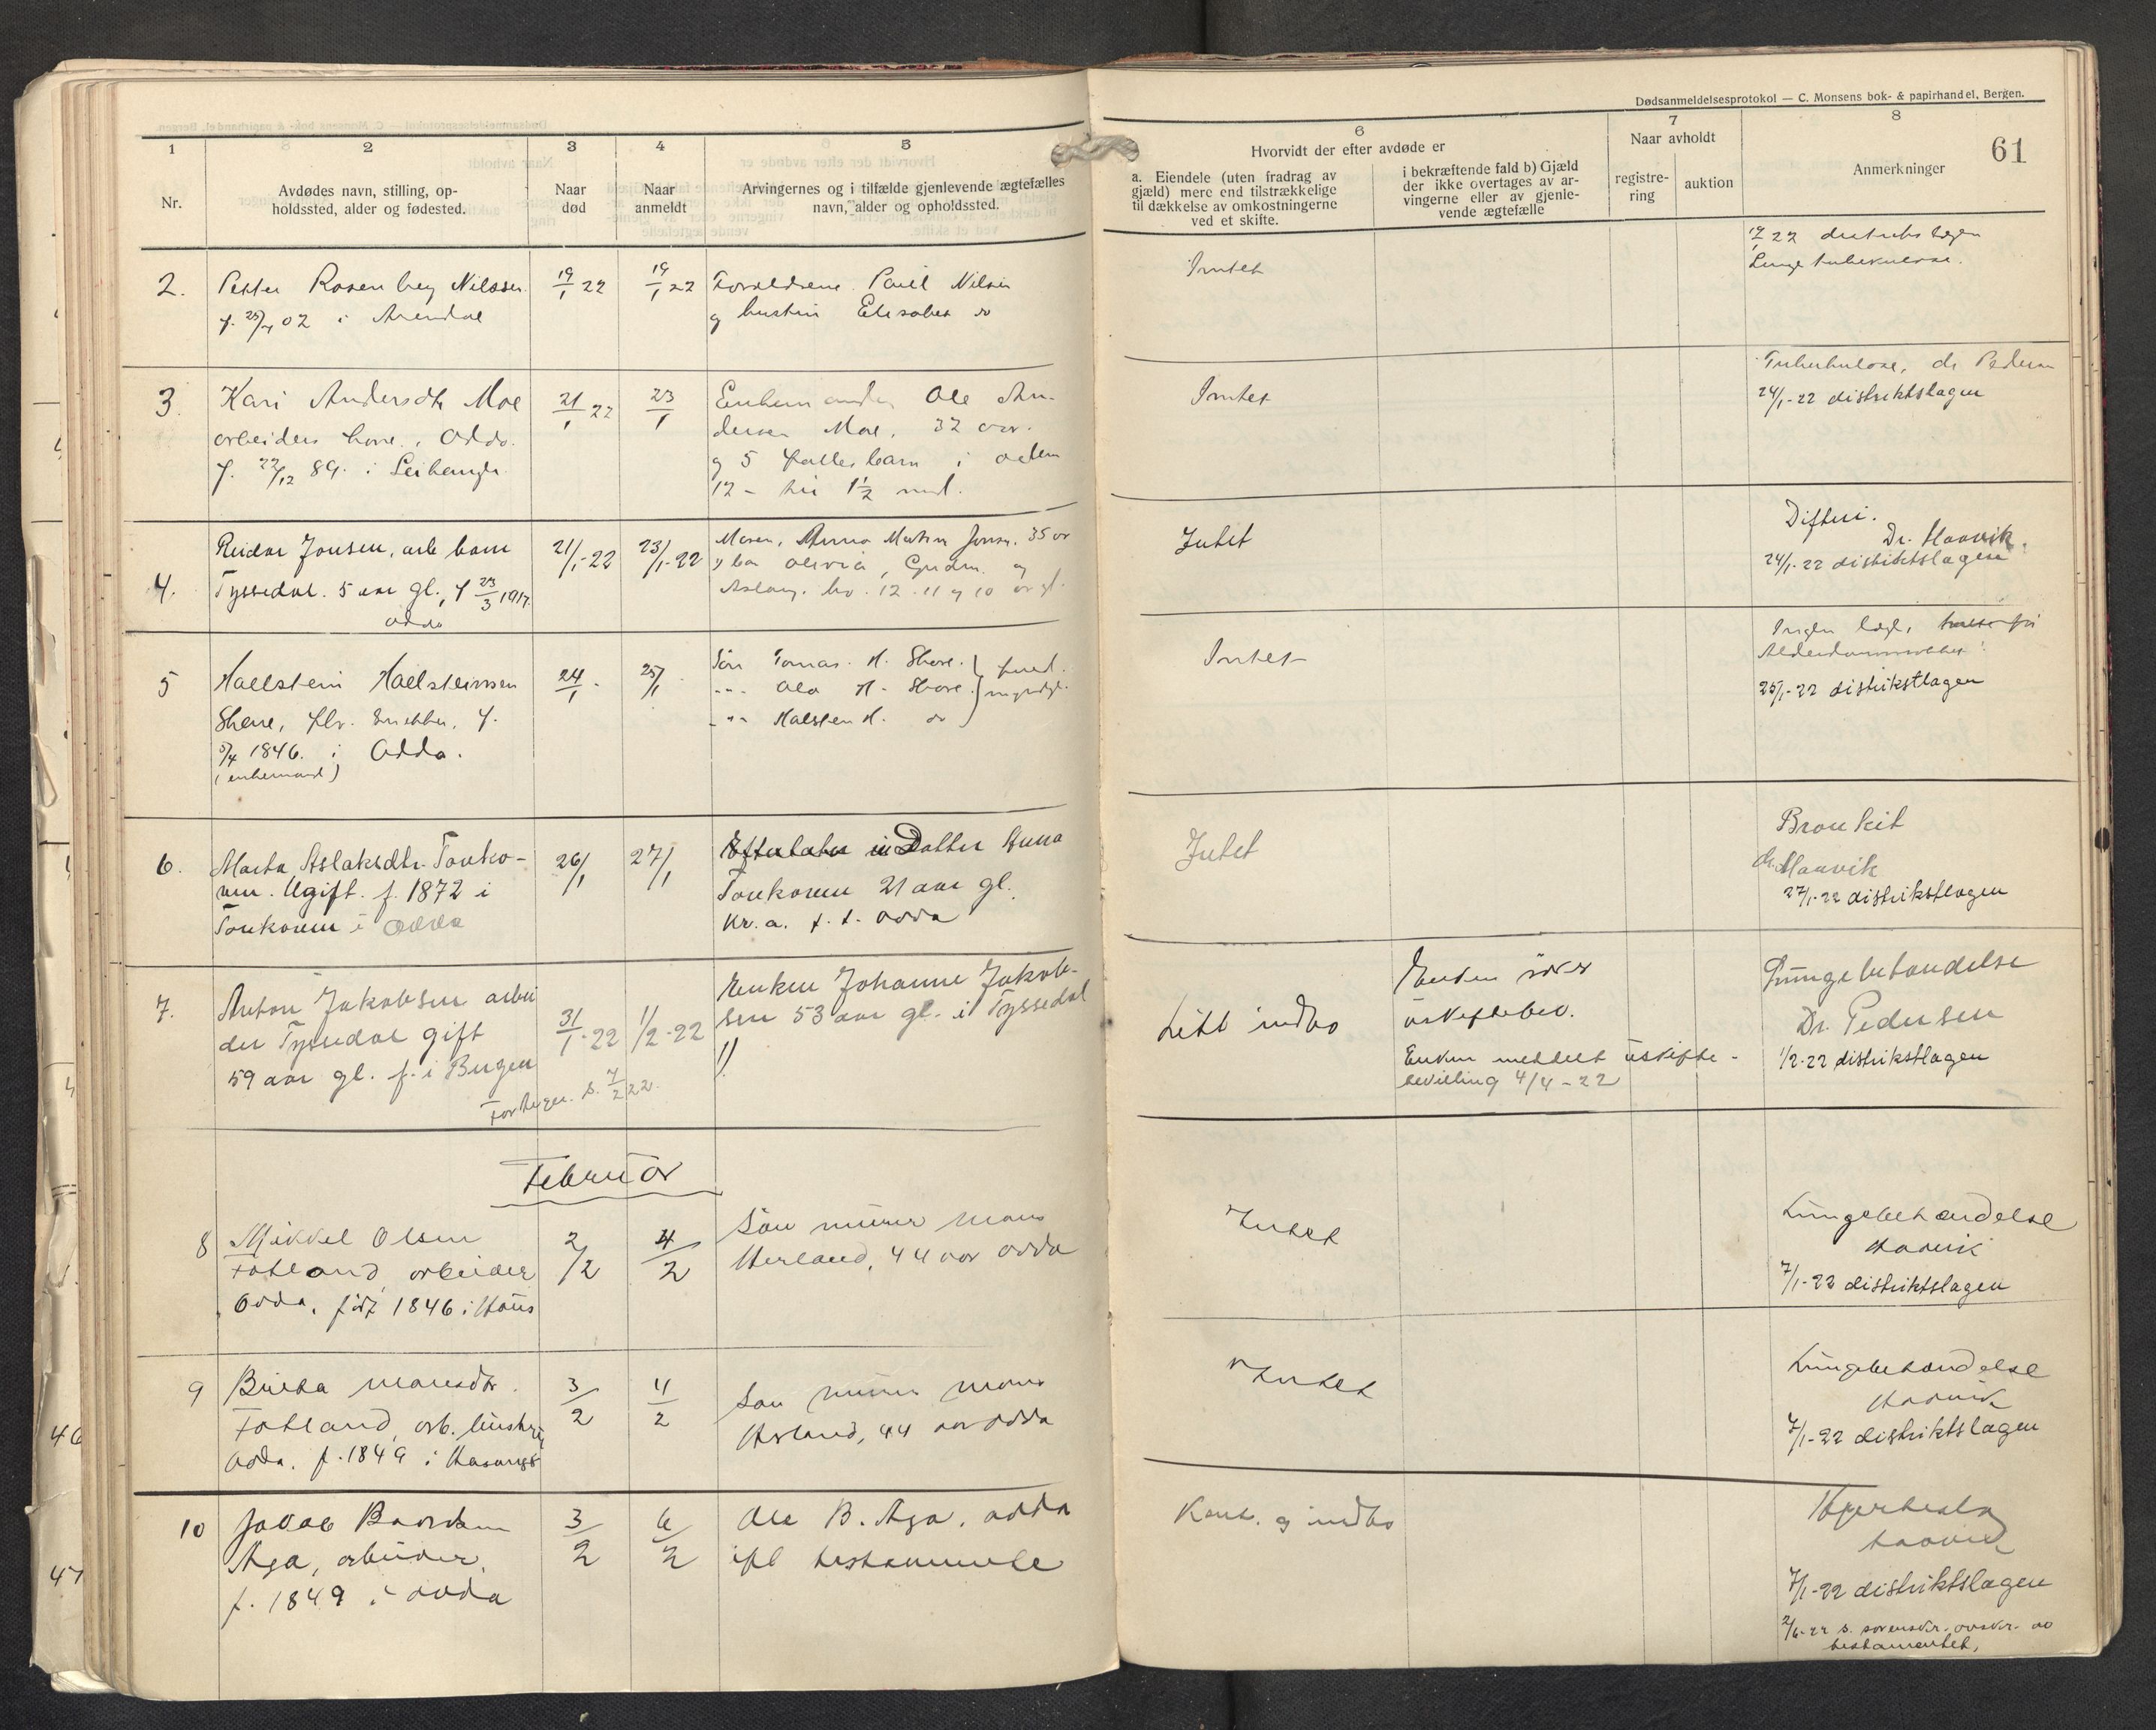 Dødsanmeldelsesprotokol — C. Monsens bok- & papirhandel, Bergen.
61
1
Nr.
2
Avdødes navn, stilling, op-
holdssted, alder og fødested.
3
Naar
død
4
Naar
anmeldt
5
Arvingernes og i tilfælde gjenlevende ægtefælles
navn, alder og opholdssted.
6
Hvorvidt der efter avdøde er
a. Eiendele (uten fradrag av
gjæld) mere end tilstrækkelige
til dækkelse av omkostningerne
ved et skifte.
i bekræftende fald b) Gjæld
der ikke overtages av ar-
vingerne eller av gjenle-
vende ægtefælle
7
Naar avholdt
registre-
ring
auktion
8
Anmerkninger
2.
Petter Rosenberg Nilssen
f. 02 i Arendal
19/1 22
19/1 22
Forældrene Paul Nilsen
og hustru Elisabet do
Intet
22 distriktslægen
Lungetuberkulose.
3.
Kari Andersdtr Moe
arbeiders kone, Odda.
f. 22/12 89. i Leikanger
21/1 22
23/1
Enkemanden Ole An-
dersen Moe, 32 aar.
og 5 fælles barn i alderen
12 - til 1½ mnd.
Intet
Tuberkulose, dr Pedersen
24/1-22 distriktslagen
4.
Reidar Jonsen, arb barn
Tyssedal. 5 aar gl., f 23/3 1917.
Odda
21/1-22
23/1-22
Moren, Anna Jonsen. 35 aar
Olivia, Gudm. og
12. 11 og 10 aar gl.
Intet
Difteri.
Dr. Haavik.
24/1-22 distriktslagen
5
Halstein Halsteinsen
Skare, flv. snekker, f.
1846. i Odda.
(enkemand)
24/1
25/1
Søn Tomas. H. Skare.
-"- Ola H. Skare.
-"- Halsten H. do
myndige.
Intet
Ingen læge,
Alderdomssvakhet
25/1-22 distriktslagen
6.
Marta Aslaksdtr. Tonko-
nen. Ugift. f. 1872 i
i Odda
26/1
27/1
Efterlater Datter Anna
21 aar gl.
Kr.a. f. t. Odda
Intet
Bronkit
dr. Haavik
27/1-22 distriktslagen
7.
Anton Jakobsen arbei
der Tyssedal gift
59 aar gl. f. i Bergen
31/1-22
1/2-22
Enken Johanne Jakob-
sen 53 aar gl. i Tyssedal
Litt indbo
Enken søker
uskiftebev.
Enken meddelt uskifte-
bevilling 4/4-22
Lungebetændelse
Dr. Pedersen
1/2-22 distriktslagen
Februar
8
Mikkel Olsen
Fotland, arbeider
Odda, født 1846 i Haus
2/2
4/2
Søn murer Mons
Herland, 44 aar Odda
Intet
Lungebetændelse
Haavik
7/1-22 distriktslagen
9
Brita Monsdtr.
Fotland, arb. hustru
Odda. f. 1849 i
3/2
4/2
Søn murer Mons
Herland, 44 aar Odda
Intet
Lungebetændelse
Haavik
7/1-22 distriktslagen
10
Jakob Baardsen
Aga, arbeider,
f. 1849 i Odda
3/2
6/2
Ole B. Aga, Odda
ifl testamente
Kont. og indbo
Haavik
7/1-22 distriktslagen
2/6-22 s. sorenskr. avskr. av
testamentet.